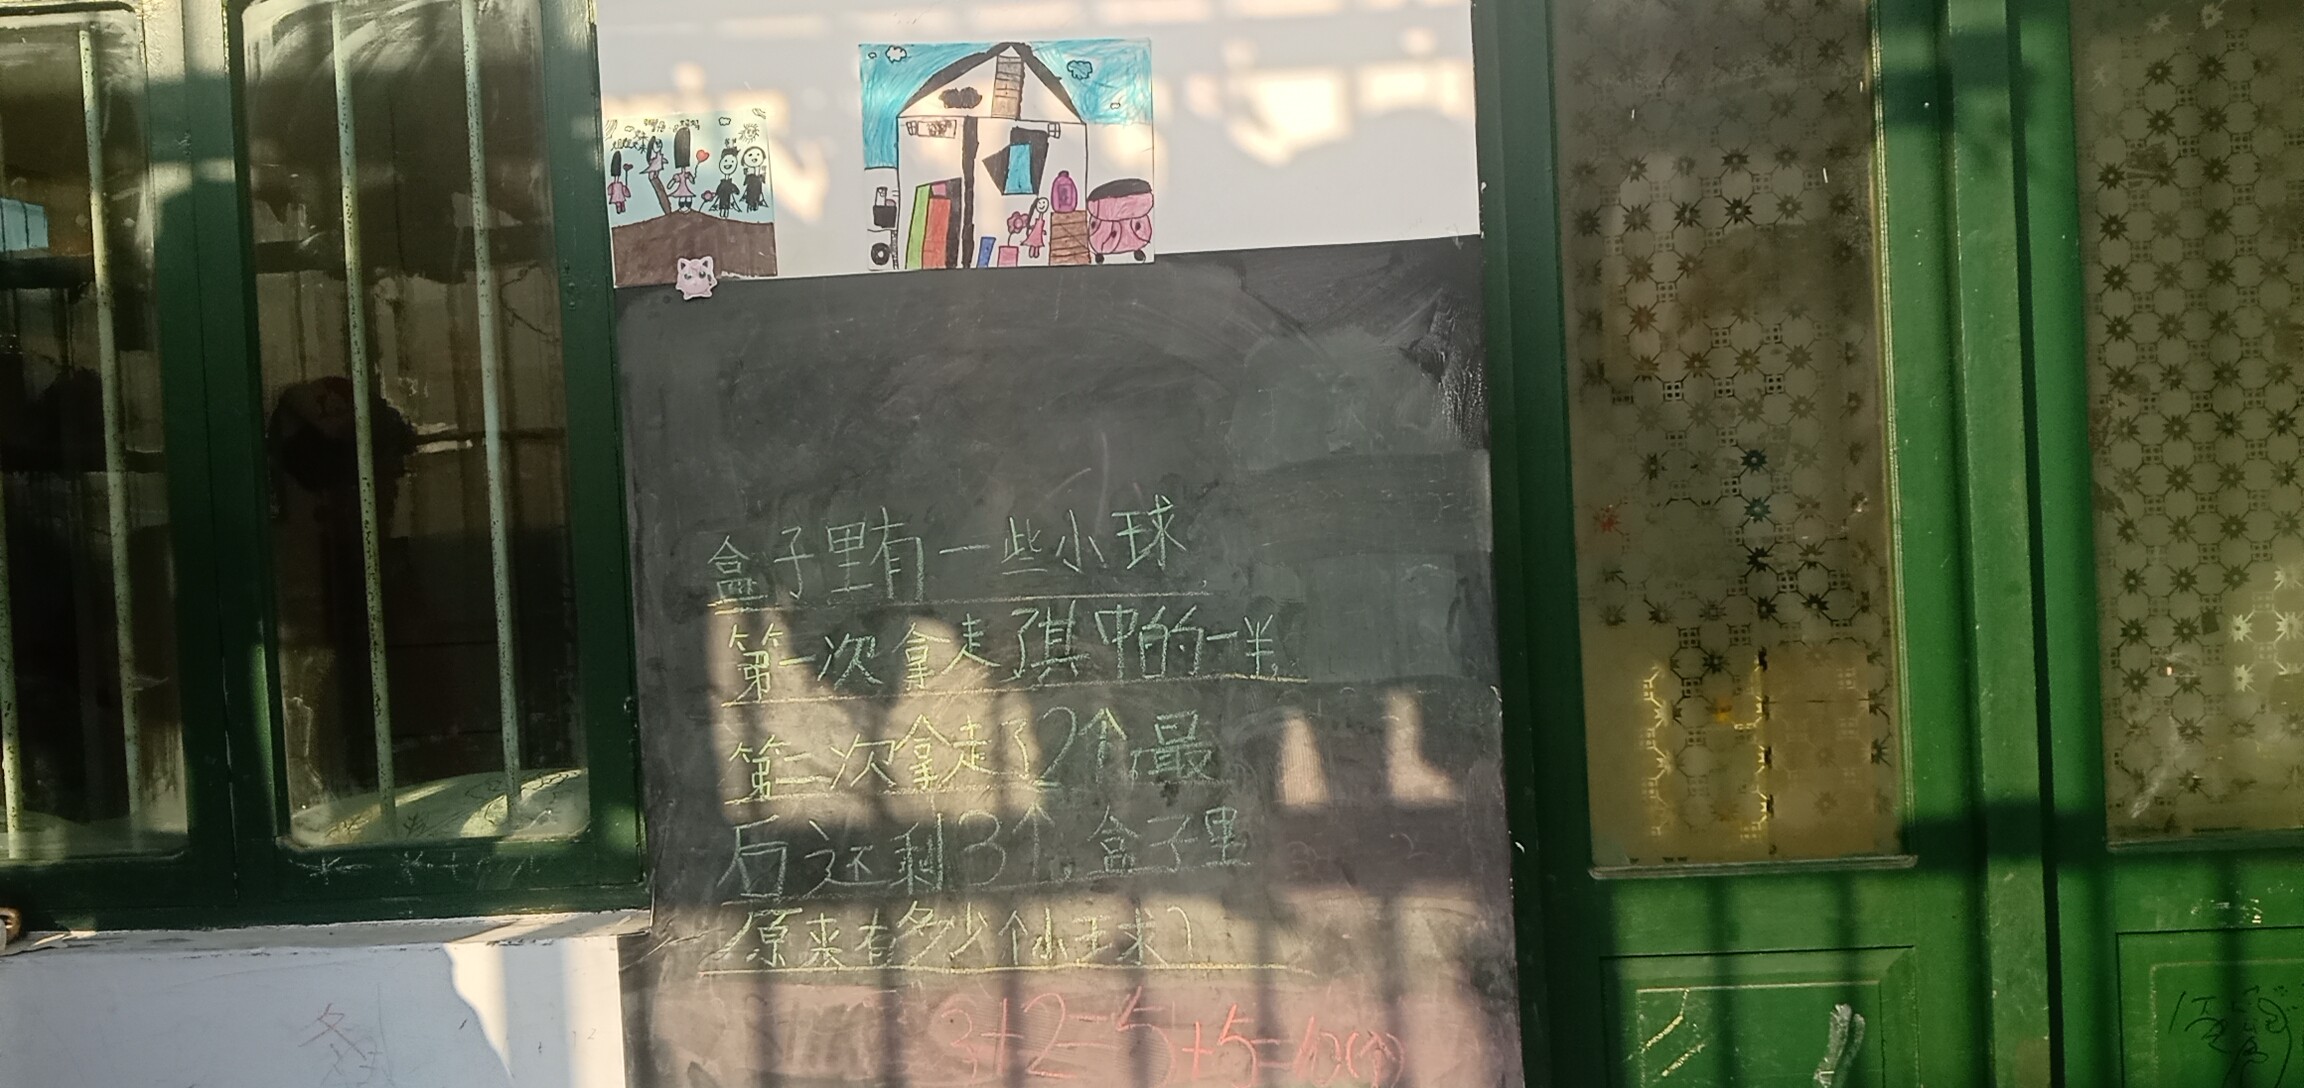 盒子里有一些小球,
第一次拿走了其中的一半,
第二次拿走了2个,最
后还剩3个,盒子里
原来有多少个小球?
3+2=5+5=10(个)
冬